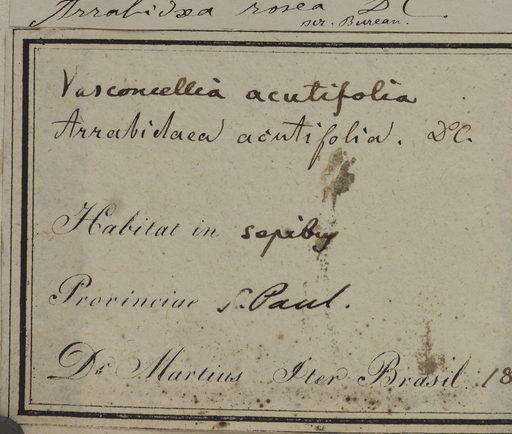 Arrabidaea rosea DC
scr. Bureau.
Vasconcellia acutifolia
Arrabidaea acutifolia. DC.
Habitat in sepibus
Provinciae S. Paul.
Dr. Martius Iter Brasil. 18